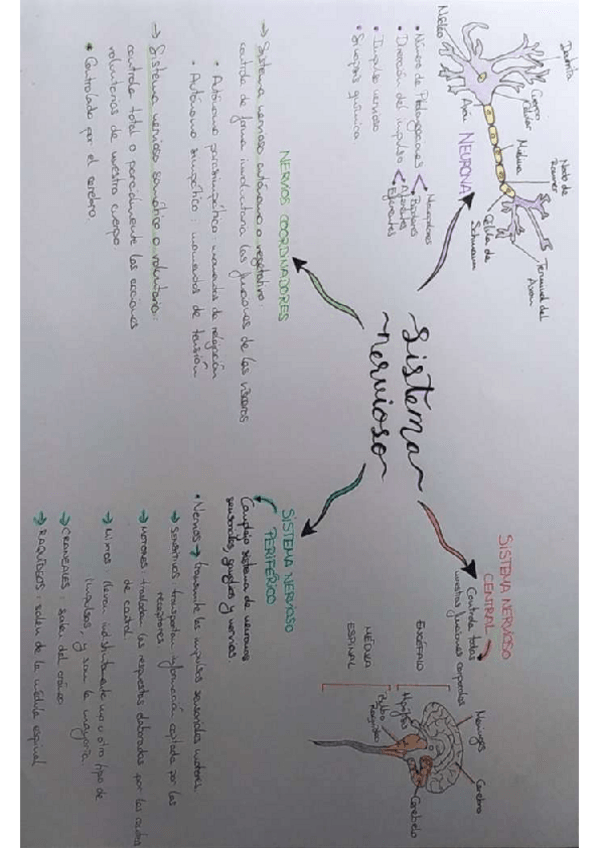 ~Sistema~
~nervioso~
NEURONA
Dendrita
Núcleo
Cuerpo
celular
Axón
Mielina
Nodo de
Ranvier
Célula de
Schwann
Terminal del
Axón
• Número de Prolongaciones
Bipolares
• Dirección del impulso
Aferentes
Eferentes
• Impulso nervioso
• Sinapsis química
SISTEMA NERVIOSO
CENTRAL
Controla todas
nuestras funciones corporales
ENCÉFALO
MÉDULA
ESPINAL
Meninges
Cerebro
Cerebelo
Hipófisis
Bulbo
Raquídeo
NERVIOS COORDINADORES
→ Sistema nervioso autónomo o vegetativo:
controla de forma involuntaria las funciones de las vísceras
• Autónomo parasimpático: momentos de relajación
• Autónomo simpático: momentos de tensión
→ Sistema nervioso somático o voluntario:
controla total o parcialmente las acciones
voluntarias de nuestro cuerpo
• Controlado por el cerebro
SISTEMA NERVIOSO
PERIFÉRICO
Complejo sistema de neuronas
sensoriales, ganglios y nervios
• Nervios → transmite los impulsos sensoriales motores.
→ SENSITIVOS: transportan información captada por los
receptores
→ MOTORES: trasladan las respuestas elaboradas por los centros
de control
→ MIXTOS: llevan indistintamente uno u otro tipo de
impulsos, y son la mayoría.
→ CRANEALES: salen del cráneo
→ RAQUÍDEOS: salen de la médula espinal